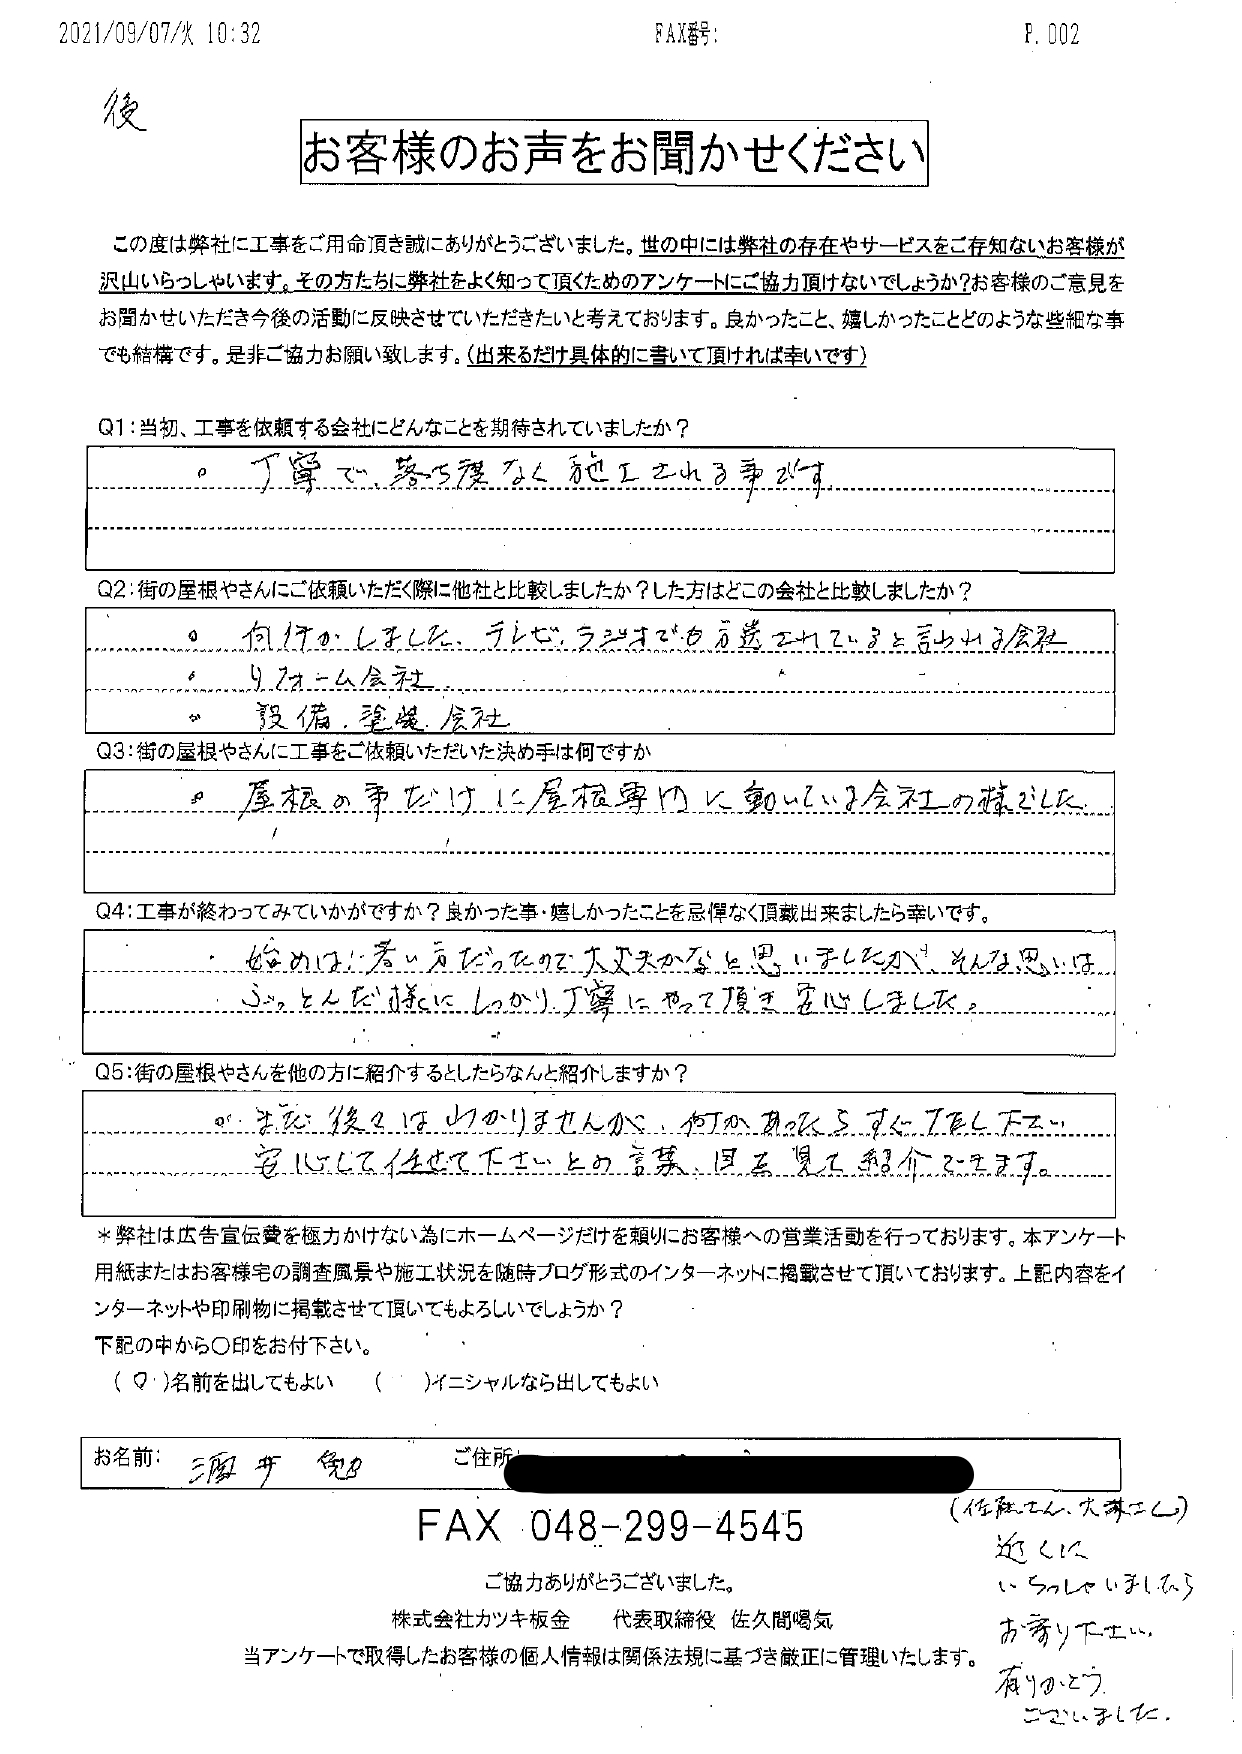 2021/09/07/火 10:32 FAX番号: P. 002
後
お客様のお声をお聞かせください
この度は弊社に工事をご用命頂き誠にありがとうございました。世の中には弊社の存在やサービスをご存知ないお客様が
沢山いらっしゃいます。その方たちに弊社をよく知って頂くためのアンケートにご協力頂けないでしょうか?お客様のご意見を
お聞かせいただき今後の活動に反映させていただきたいと考えております。良かったこと、嬉しかったことどのような些細な事
でも結構です。是非ご協力お願い致します。(出来るだけ具体的に書いて頂ければ幸いです)
Q1:当初、工事を依頼する会社にどんなことを期待されていましたか?
。丁寧で、落ち度なく施工される事です
Q2:街の屋根やさんにご依頼いただく際に他社と比較しましたか?した方はどこの会社と比較しましたか?
。何件かしました、テレビ、ラジオでも放送されていると言われる会社
。リフォーム会社
。設備、塗装、会社
Q3:街の屋根やさんに工事をご依頼いただいた決め手は何ですか
。屋根の事だけに屋根専門に動いている会社の様でした
Q4:工事が終わってみていかがですか?良かった事・嬉しかったことを忌憚なく頂戴出来ましたら幸いです。
・始めは、若い方だったので大丈夫かなと思いましたが、そんな思いは
ふっとんだ様にしっかり丁寧にやって頂き安心しました。
Q5:街の屋根やさんを他の方に紹介するとしたらなんと紹介しますか?
。まだ後々はわかりませんが、何かあったらすぐTELして下さい
安心して任せて下さいとの言葉、見て紹介できます。
*弊社は広告宣伝費を極力かけない為にホームページだけを頼りにお客様への営業活動を行っております。本アンケート
用紙またはお客様宅の調査風景や施工状況を随時ブログ形式のインターネットに掲載させて頂いております。上記内容をイ
ンターネットや印刷物に掲載させて頂いてもよろしいでしょうか?
下記の中から〇印をお付下さい。
(〇)名前を出してもよい ( )イニシャルなら出してもよい
お名前: 酒井 勉 ご住所
FAX 048-299-4545
(佐藤さん、大澤さん)
近くに
いらっしゃいましたら
お寄り下さい。
有りがとう
ございました.
ご協力ありがとうございました。
株式会社カツキ板金 代表取締役 佐久間喝気
当アンケートで取得したお客様の個人情報は関係法規に基づき厳正に管理いたします。